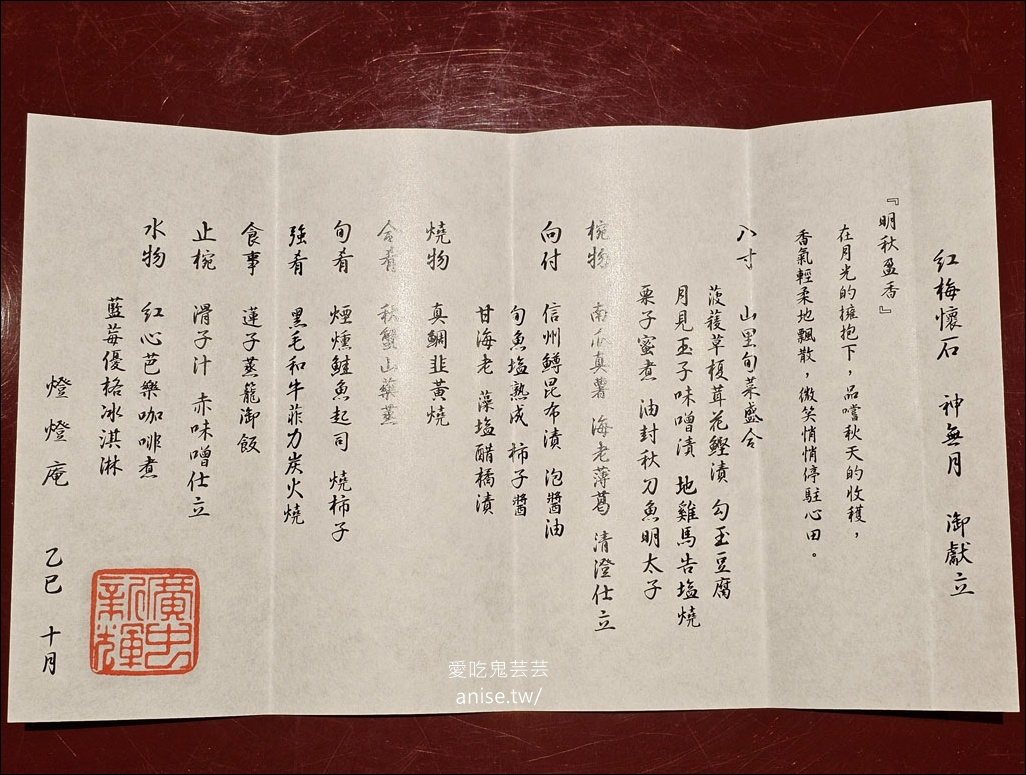 紅梅懷石 神無月 御獻立
『明秋盈香』
在月光的擁抱下，品嚐秋天的收穫，
香氣輕柔地飄散，微笑悄悄停駐心田。
八寸 山里旬菜盛合
菠薐草榎茸花鰹漬 勾玉豆腐
月見玉子味噌漬 地雞馬告塩燒
栗子蜜煮 油封秋刀魚明太子
椀物 南瓜真薯 海老薄葛 清澄仕立
向付 信州鱒昆布漬 泡醬油
旬魚塩熟成 柿子醬
甘海老 藻塩醋橘漬
燒物 真鯛韭黃燒
合肴 秋蟹山藥蒸
旬肴 煙燻鮭魚起司 燒柿子
強肴 黑毛和牛菲力炭火燒
食事 蓮子蒸籠御飯
止椀 滑子汁 赤味噌仕立
水物 紅心芭樂咖啡煮
藍莓優格冰淇淋
燈燈庵 乙巳 十月
廣中
新輝
愛吃鬼芸芸
anise.tw/